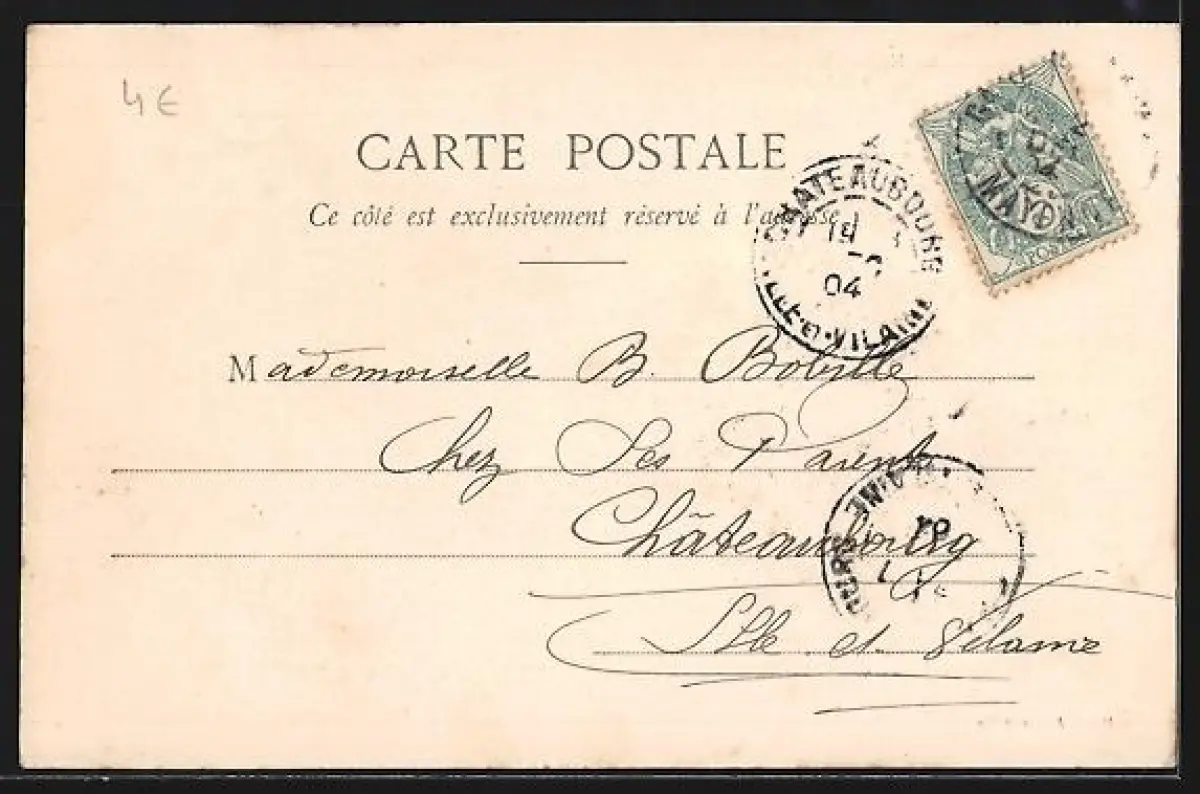 4€
CARTE POSTALE
Ce côté est exclusivement réservé à l'adresse
CHATEAUBOURG
19
04
ILLE-ET-VILAINE
MAYENNE
POSTES
Mademoiselle B.
Chez Ses Parents
Châteaubourg
04
Ille et Vilaine